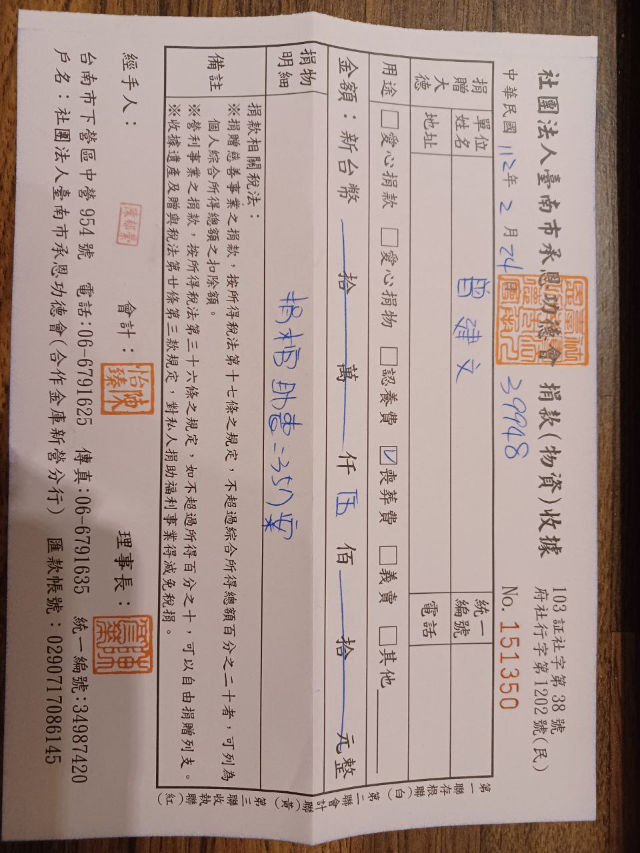 社團法人臺南市承恩功德會 捐款(物資)收據
103 証社字第 38 號
府社行字第1202 號(民)
中華民國 112 年 2 月 24 日
39948
No. 151350
捐贈大德
單位姓名
曾建文
統一編號
地址
電話
用途 □愛心捐款 □愛心捐物 □認養費 ☑喪葬費 □義賣 □其他
金額：新台幣 拾 萬 仟 伍 佰 拾 元整
捐物明細
捐棺助喪:357案
備註
捐款相關稅法：
※捐贈慈善事業之捐款，按所得稅法第十七條之規定，不超過綜合所得總額百分之二十者，可列為
個人綜合所得總額之扣除額。
※營利事業之捐款，按所得稅法第三十六條之規定，如不超過所得百分之十，可以自由捐贈列支。
※收據遺產及贈與稅法第廿條第三款規定，對私人捐助福利事業得減免稅捐。
第一聯存根(白) 第二聯會計(黃) 第三聯收執(紅)
經手人： 會計： 理事長：
陳怡臻
台南市下營區中營 954 號 電話:06-6791625 傳真:06-6791635 統一編號:34987420
戶名：社團法人臺南市承恩功德會(合作金庫新營分行) 匯款帳號：0290717086145